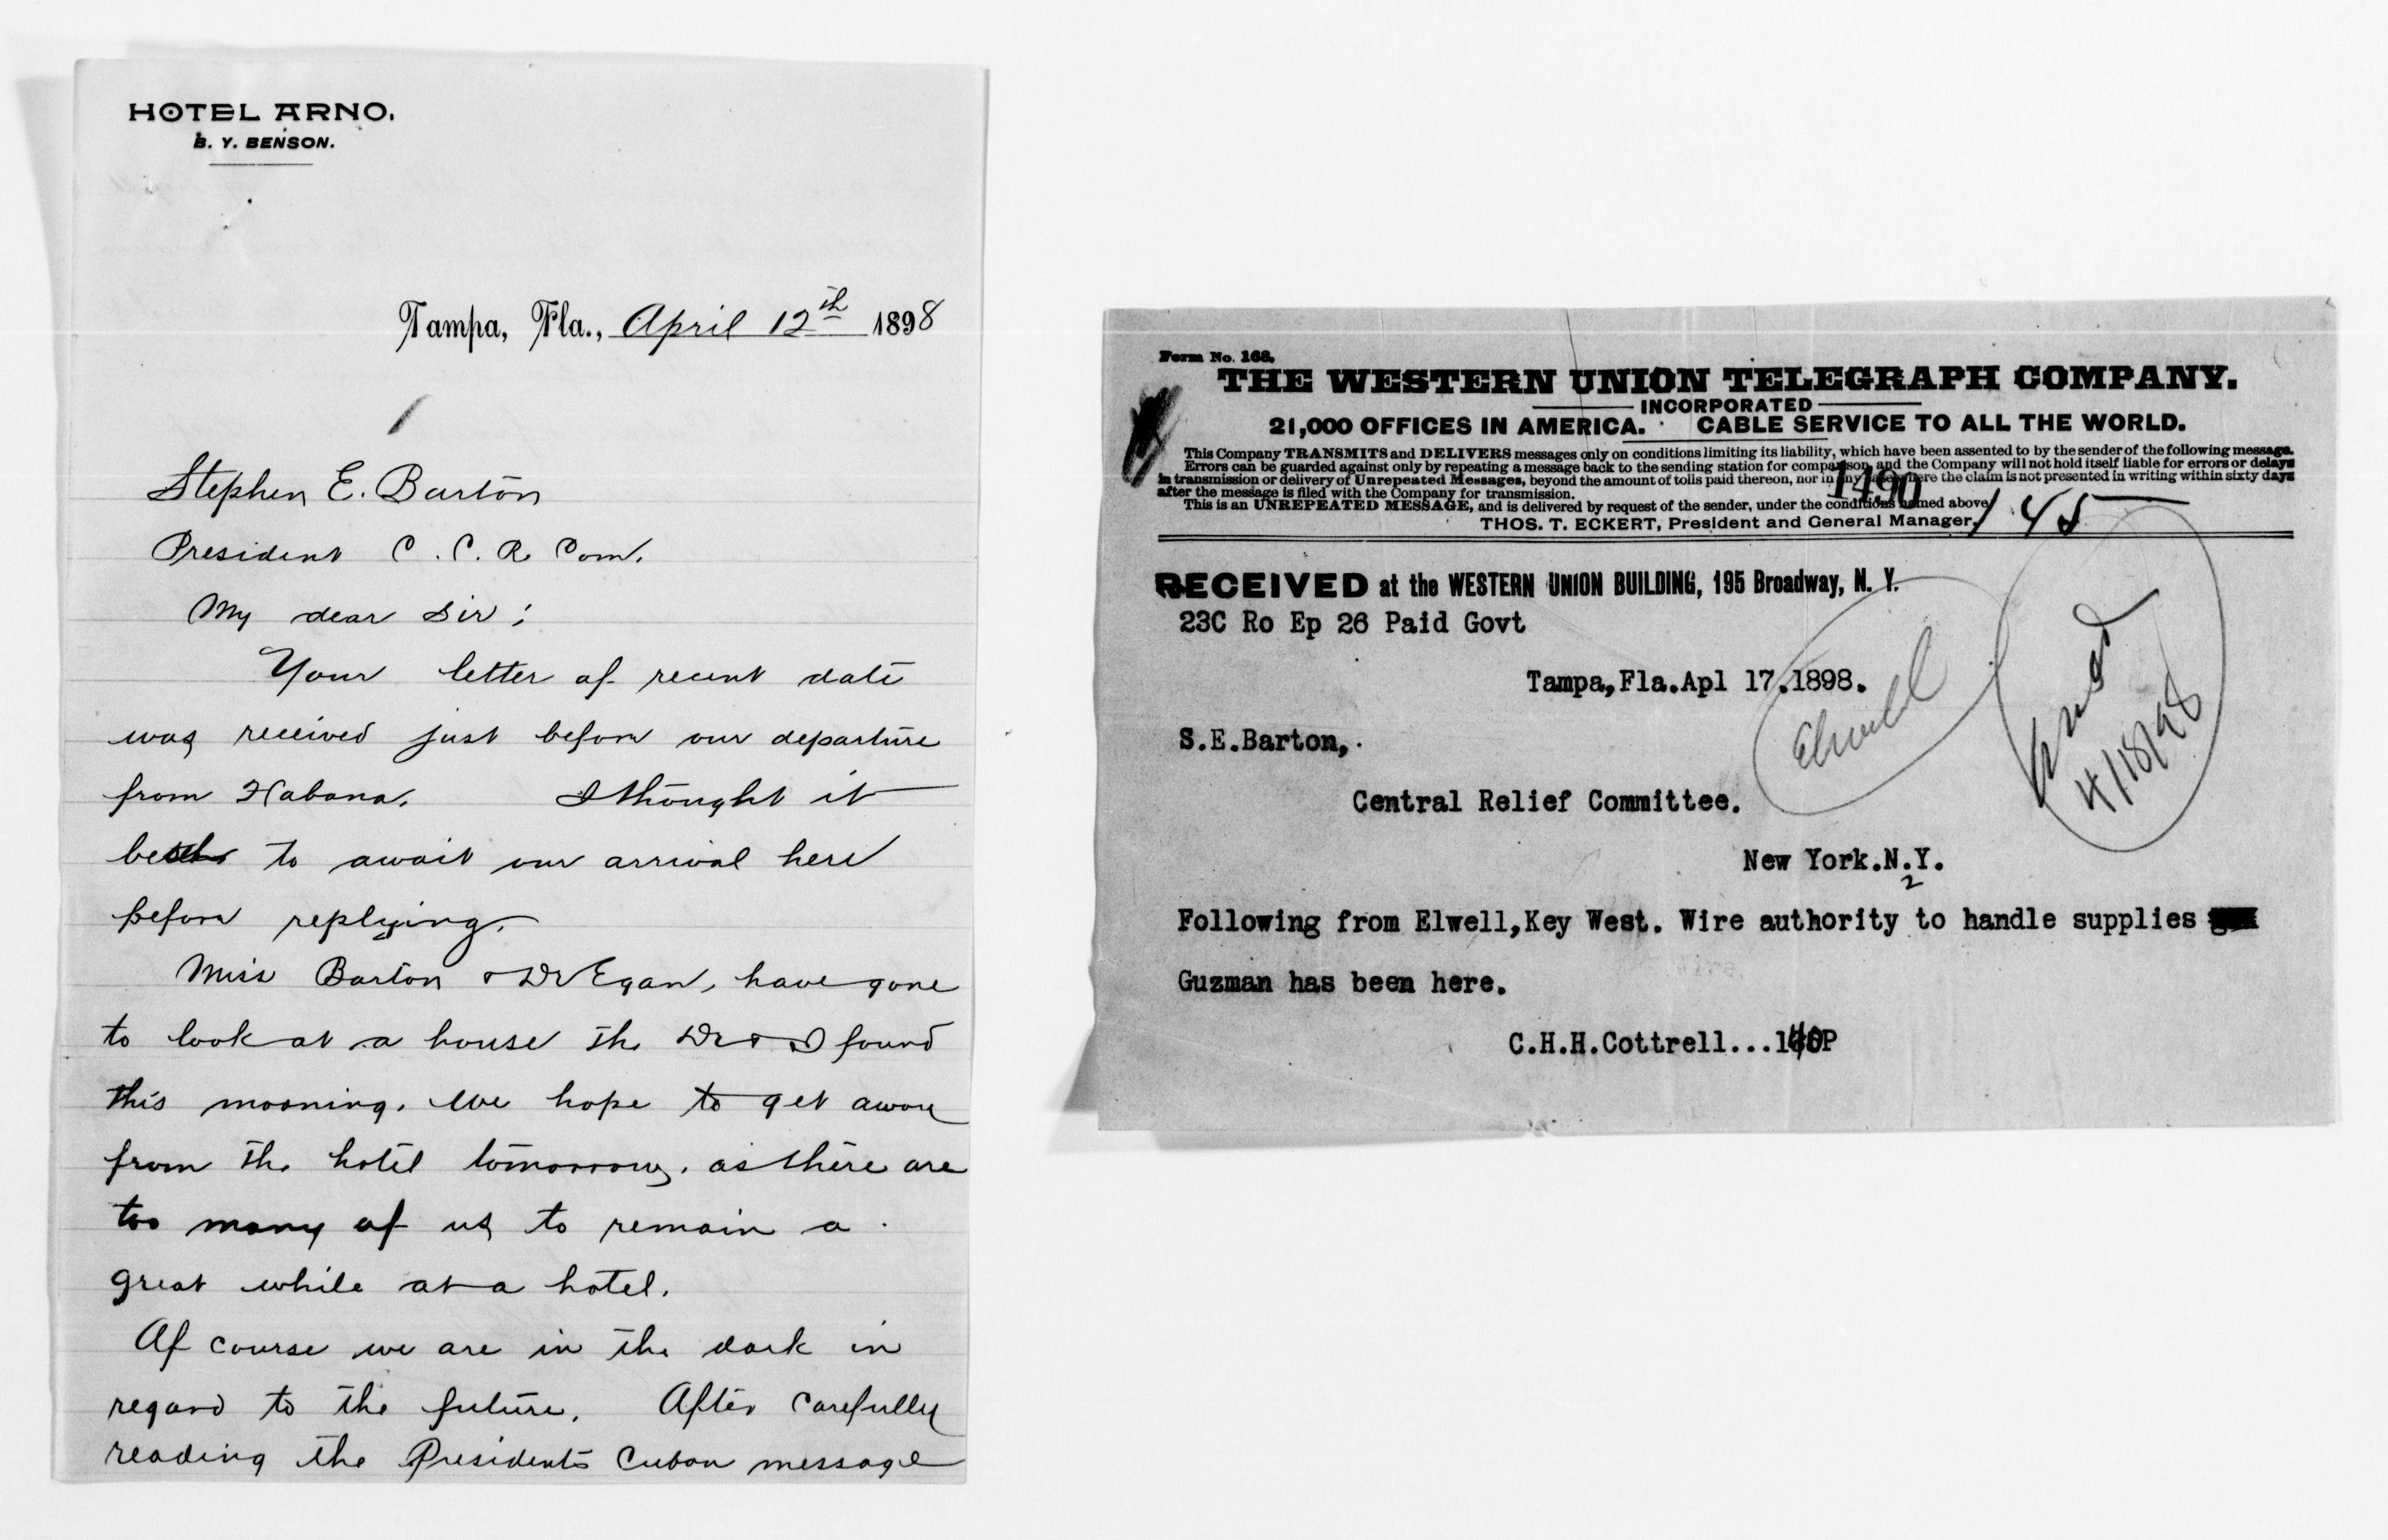 HOTEL ARNO.
B. Y. BENSON.
Tampa, Fla., April 12th 1898
Stephen E. Barton
President C. C. R. Com.
My dear Sir;
Your letter of recent date
was received just before our departure
from Habana. I thought it
best to await our arrival here
before replying.
Miss Barton & Dr Egan, have gone
to look at a house the Dr & I found
this morning. We hope to get away
from the hotel tomorrow, as there are
too many of us to remain a
great while at a hotel.
Of course we are in the dark in
regard to the future. After carefully
reading the Presidents Cuban message
Form No. 168.
THE WESTERN UNION TELEGRAPH COMPANY.
INCORPORATED
21,000 OFFICES IN AMERICA. CABLE SERVICE TO ALL THE WORLD.
This Company TRANSMITS and DELIVERS messages only on conditions limiting its liability, which have been assented to by the sender of the following message.
Errors can be guarded against only by repeating a message back to the sending station for comparison, and the Company will not hold itself liable for errors or delays
in transmission or delivery of Unrepeated Messages, beyond the amount of tolls paid thereon, nor in any case where the claim is not presented in writing within sixty days
after the message is filed with the Company for transmission.
This is an UNREPEATED MESSAGE, and is delivered by request of the sender, under the conditions named above.
THOS. T. ECKERT, President and General Manager.
1490
145
RECEIVED at the WESTERN UNION BUILDING, 195 Broadway, N. Y.
23C Ro Ep 26 Paid Govt
Tampa,Fla.Apl 17.1898.
Elwell
4/18/98
S.E.Barton,
Central Relief Committee.
New York.N.Y.
2
Following from Elwell,Key West. Wire authority to handle supplies
Guzman has been here.
C.H.H.Cottrell...140P